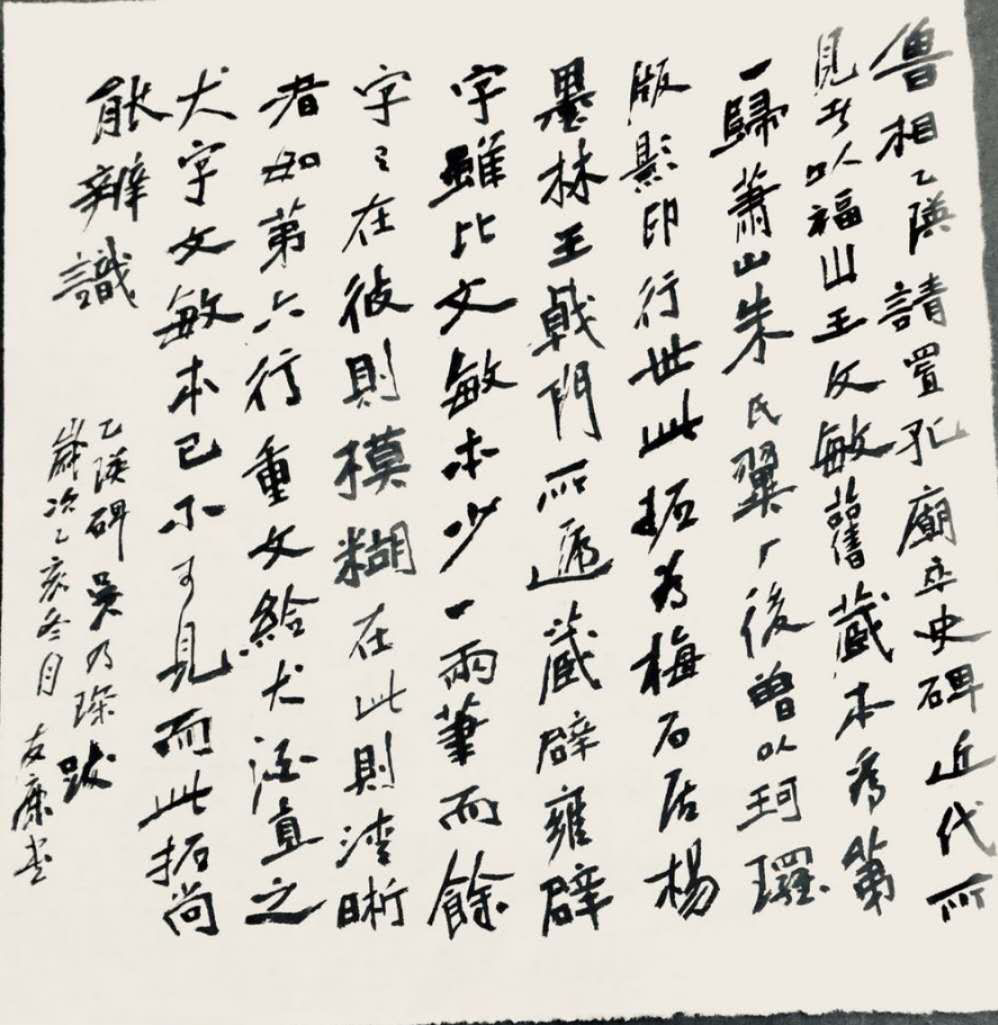 魯相乙瑛請置孔廟卒史碑近代所
見者以福山王文敏舊藏本為第
一歸蕭山朱氏翼厂後曾以珂瓓
版影印行世此拓為梅石居楊
墨林王戟門所遞藏辟雍辟
字雖比文敏本少一兩筆而餘
字々在彼則模糊在此則清晰
者如第六行重文給犬酒直之
犬字文敏本已不可見而此拓尚
能辨識
乙瑛碑吳乃琛跋
歲次乙亥冬月友康書